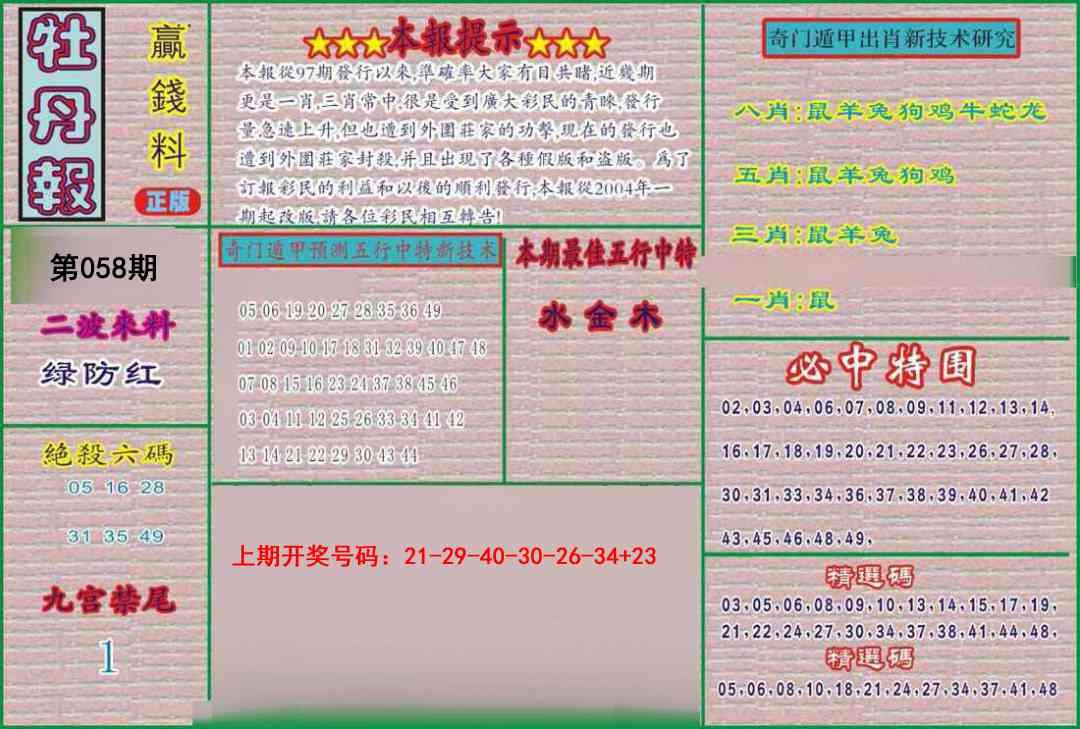 牡丹報
贏錢料
正版
第058期
二波來料
绿防红
絕殺六碼
05 16 28
31 35 49
九宫禁尾
1
★★★本報提示★★★
本報從97期發行以來,準確率大家有目共睹,近幾期
更是一肖,三肖常中,很是受到廣大彩民的青睞,發行
量急速上升,但也遭到外圍莊家的功擊,現在的發行也
遭到外圍莊家封殺,并且出現了各種假版和盗版。爲了
訂報彩民的利益和以後的順利發行,本報從2004年一
期起改版,請各位彩民相互轉告!
奇门遁甲预测五行中特新技术
05 06 19 20 27 28 35 36 49
01 02 09 10 17 18 31 32 39 40 47 48
07 08 15 16 23 24 37 38 45 46
03 04 11 12 25 26 33 34 41 42
13 14 21 22 29 30 43 44
本期最佳五行中特
水 金 木
上期开奖号码：21-29-40-30-26-34+23
奇门遁甲出肖新技术研究
八肖:鼠羊兔狗鸡牛蛇龙
五肖:鼠羊兔狗鸡
三肖:鼠羊兔
一肖:鼠
必中特围
02,03,04,06,07,08,09,11,12,13,14,
16,17,18,19,20,21,22,23,26,27,28,
30,31,33,34,36,37,38,39,40,41,42
43,45,46,48,49,
精選碼
03,05,06,08,09,10,13,14,15,17,19,
21,22,24,27,30,34,37,38,41,44,48,
精選碼
05,06,08,10,18,21,24,27,34,37,41,48